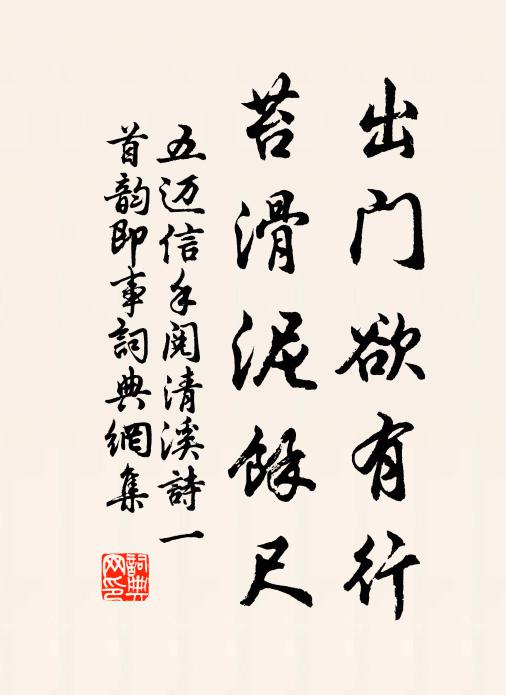 出门欲有行
苔滑泥馀尺
五迈信手阅清溪詩一
首韵即事詞典網集
詞典网印